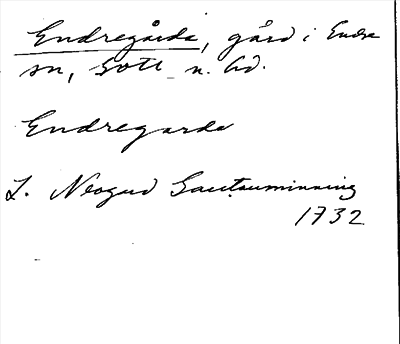 Endregårda, gård i Endre
sn, Gotl. n. hd.
Endregarda
L. Neogard Gautauminning
1732